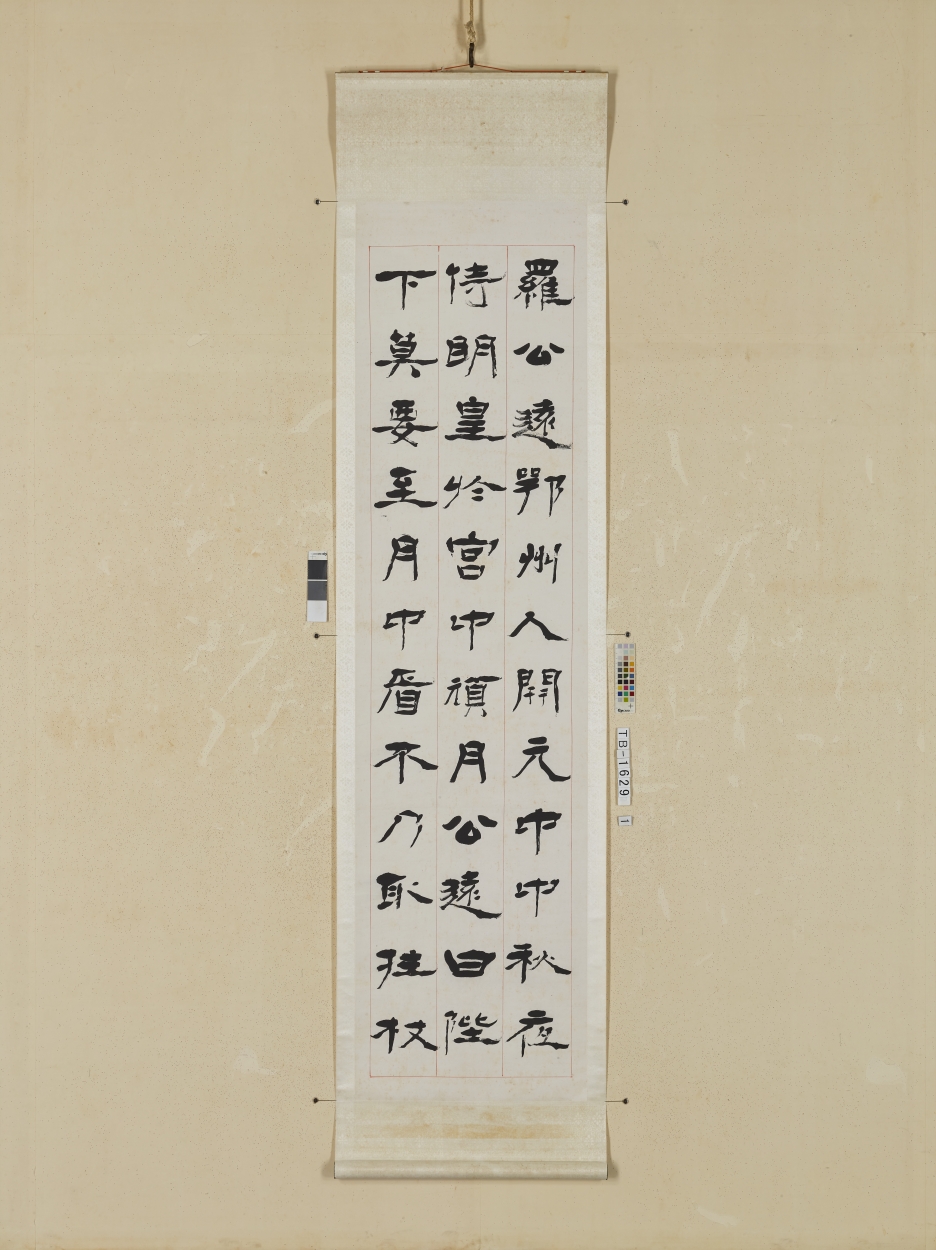 羅公遠鄂州人開元中中秋夜
侍明皇於宮中翫月公遠曰陛
下莫要至月中看不乃取拄杖
TB-1629
1